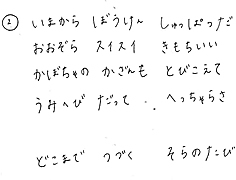 ② いまから ぼうけん しゅっぱつだ
おおぞら スイスイ きもちいい
かぼちゃの かざんも とびこえて
うみへび だって へっちゃらさ
どこまで つづく そらのたび